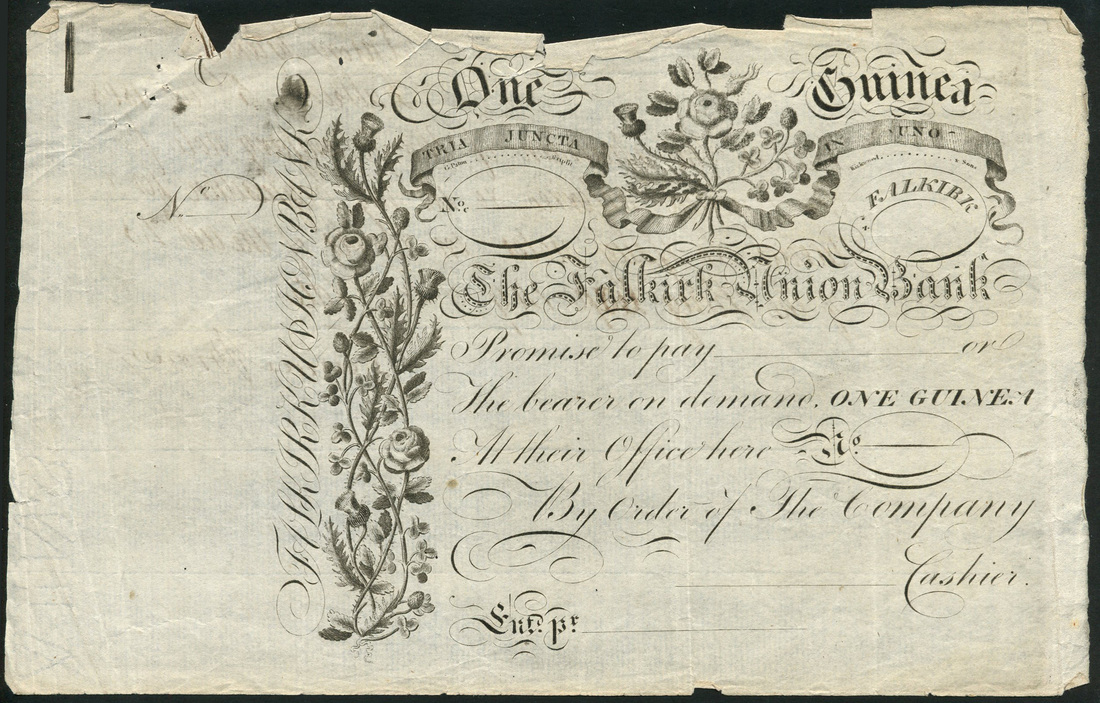 One Guinea
TRIA JUNCTA IN UNO
No.
FALKIRK
The Falkirk Union Bank
Promise to pay or
The bearer on demand, ONE GUINEA
At their Office here No.
By Order of The Company
Cashier.
Entd. pr.
No.
FALKIRK UNION BANK